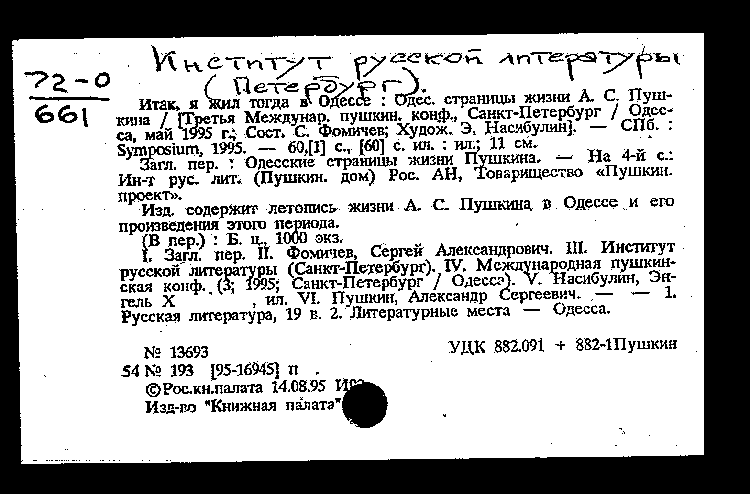 Институт русской литературы
(Петербург).
72-0
661
Итак, я жил тогда в Одессе : Одес. страницы жизни А. С. Пуш-
кина / [Третья Междунар. пушкин. конф., Санкт-Петербург / Одес-
са, май 1995 г.; Сост. С. Фомичев; Худож. Э. Насибулин]. — СПб. :
Symposium, 1995. — 60,[1] с., [60] с. ил. : ил.; 11 см.
Загл. пер. : Одесские страницы жизни Пушкина. — На 4-й с.:
Ин-т рус. лит. (Пушкин. дом) Рос. АН, Товарищество «Пушкин.
проект».
Изд. содержит летопись жизни А. С. Пушкина в Одессе и его
произведения этого периода.
(В пер.) : Б. ц., 1000 экз.
I. Загл. пер. II. Фомичев, Сергей Александрович. III. Институт
русской литературы (Санкт-Петербург). IV. Международная пушкин-
ская конф. (3; 1995; Санкт-Петербург / Одесса). V. Насибулин, Эн-
гель Х , ил. VI. Пушкин, Александр Сергеевич. — — 1.
Русская литература, 19 в. 2. Литературные места — Одесса.
№ 13693 УДК 882.091 + 882-1Пушкин
54 № 193 [95-16945] п .
©Рос.кн.палата 14.08.95
Изд-во "Книжная палата"